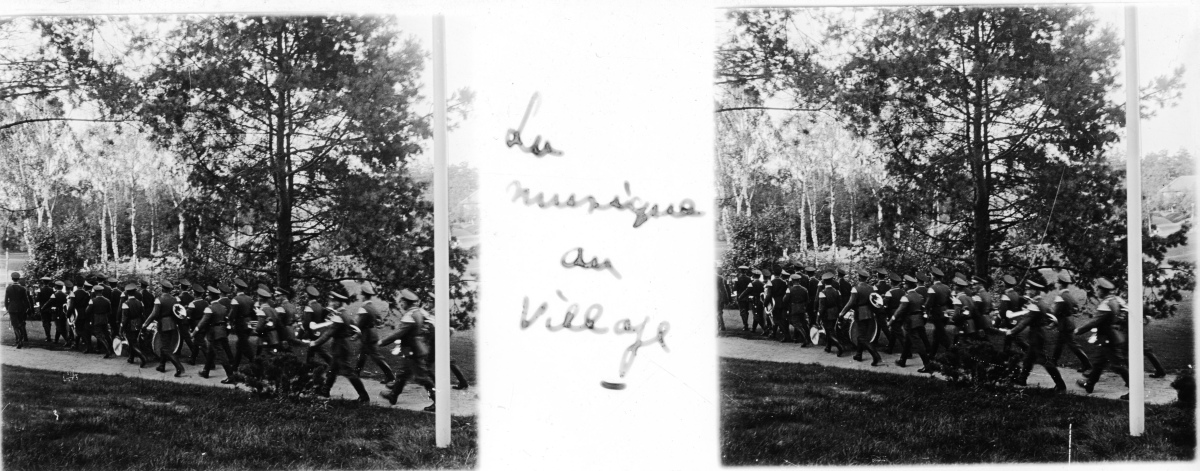 La
musique
au
Village